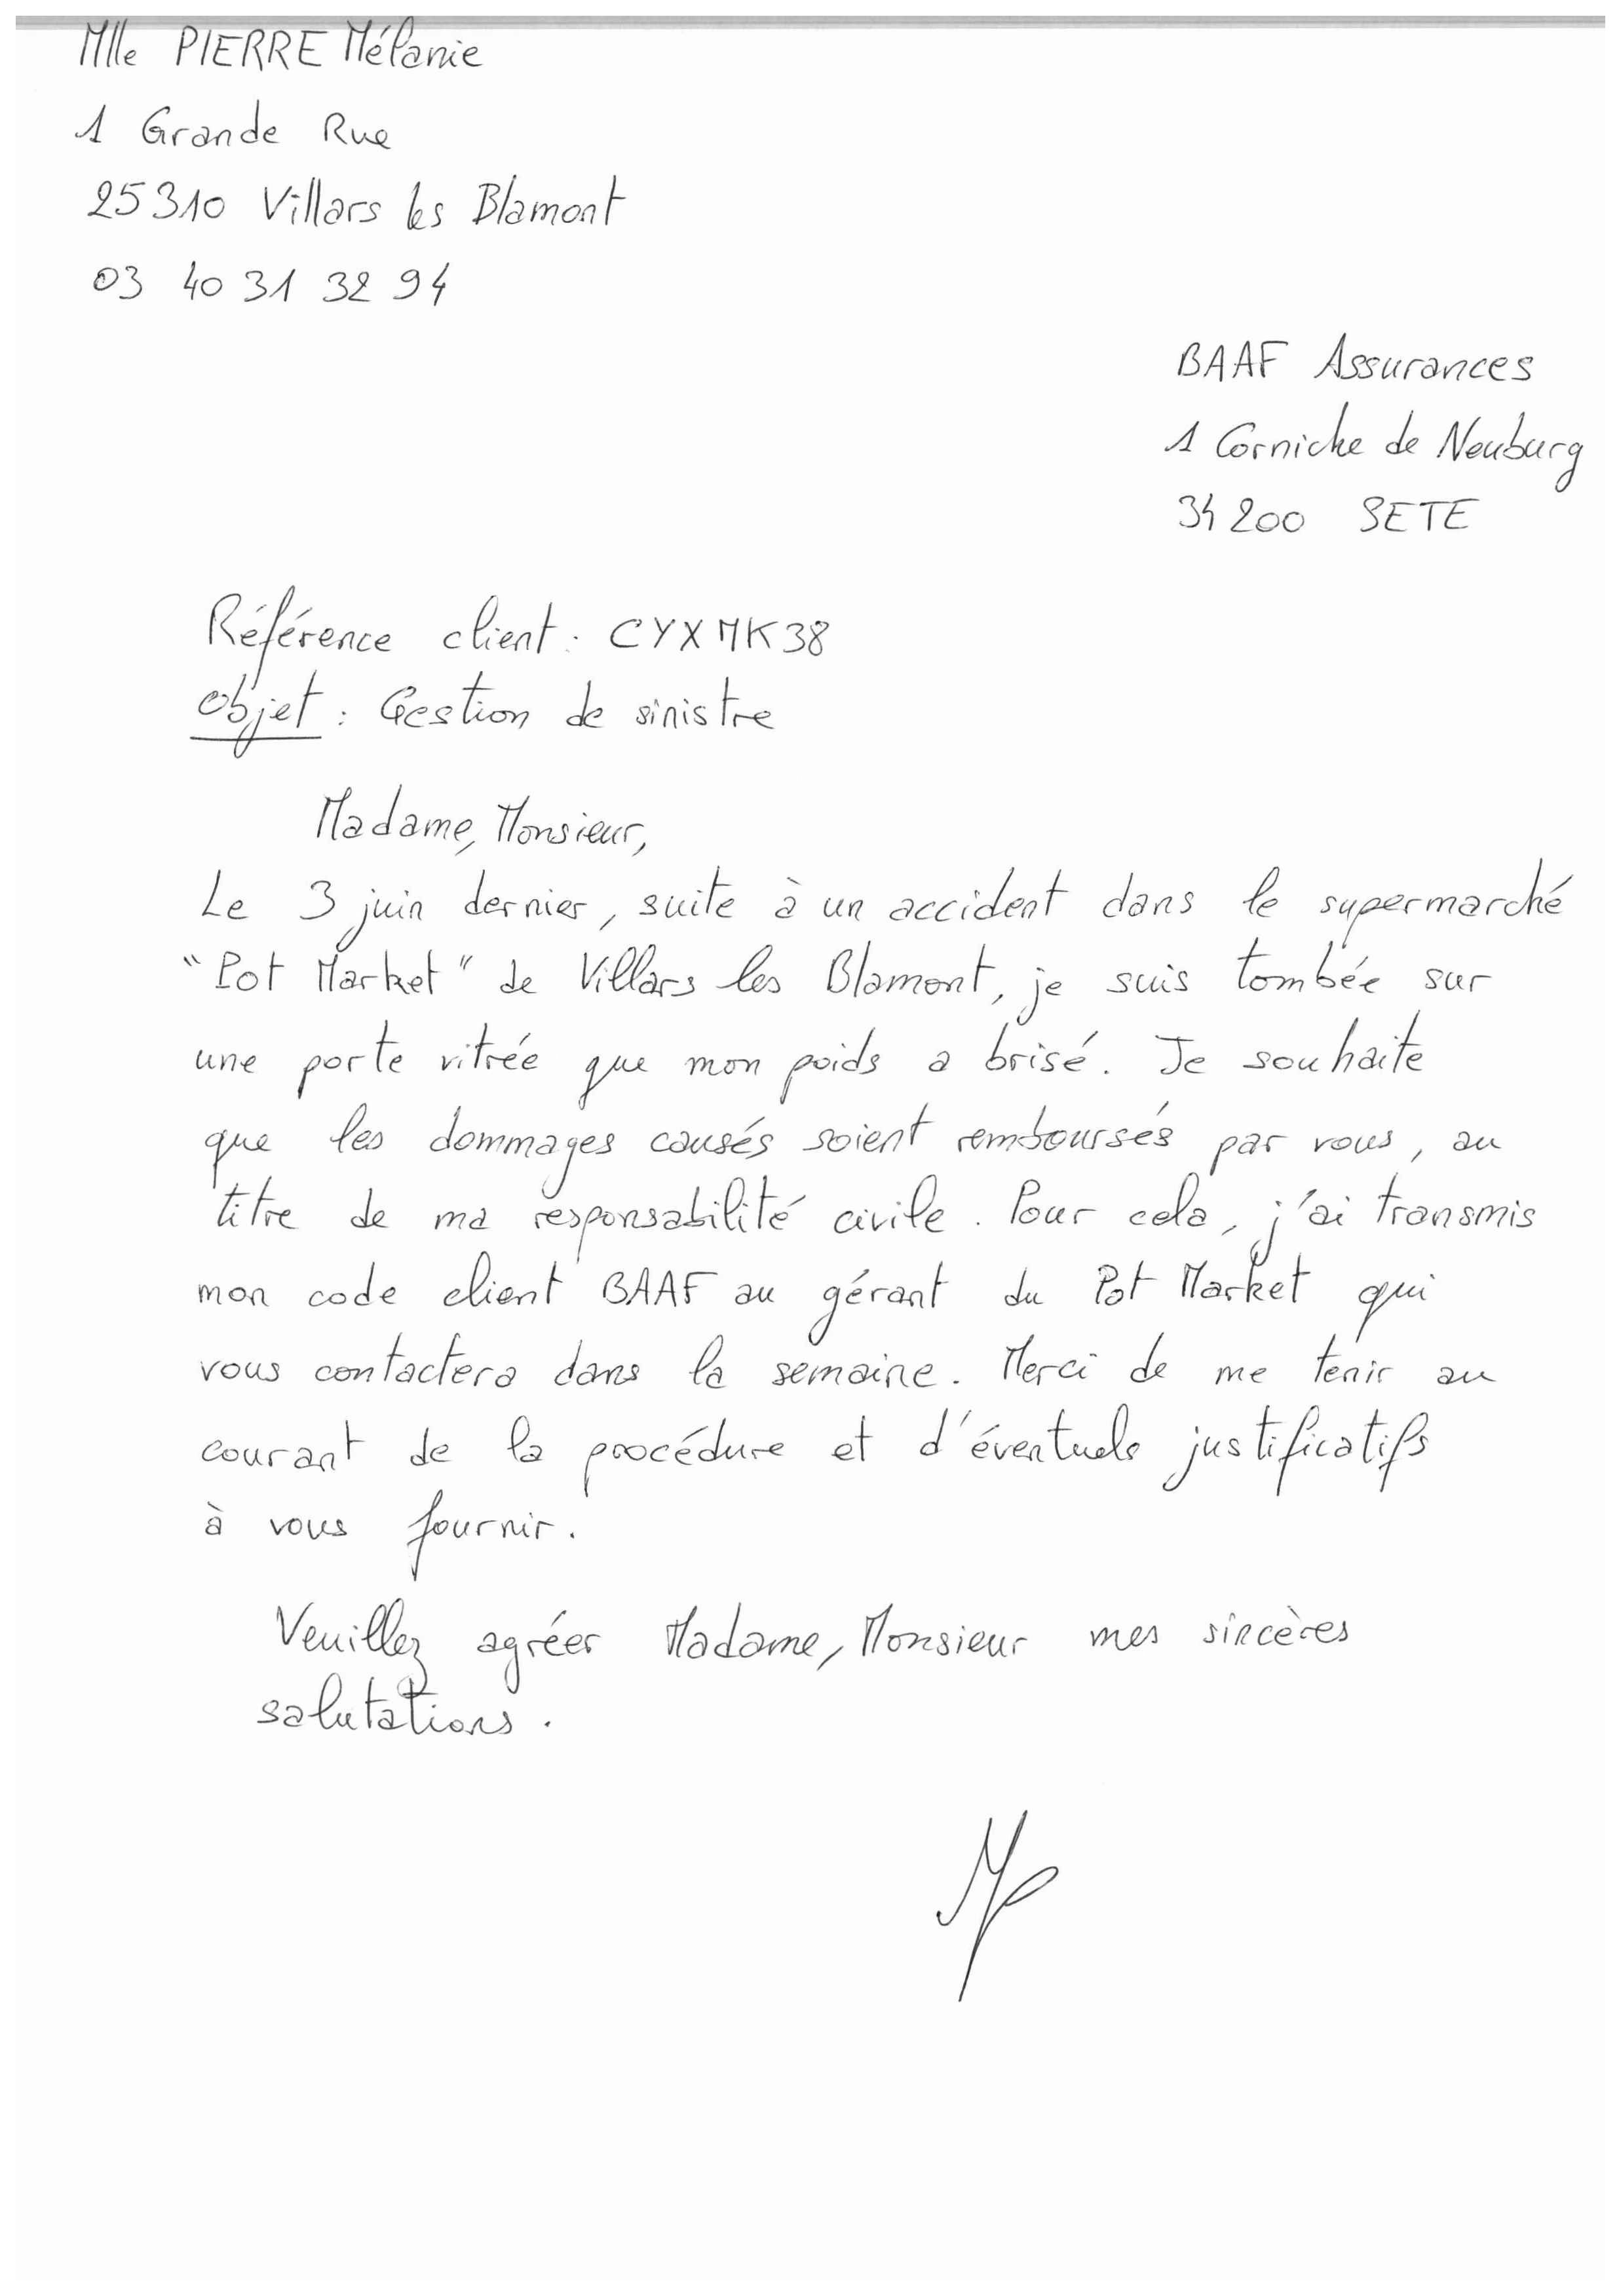 Mlle PIERRE Mélanie
1 Grande Rue
25310 Villars les Blamont
03 40 31 32 94
BAAF Assurances
1 Corniche de Neuburg
34200 SETE
Référence client : CYXMK38
Objet : Gestion de sinistre
Madame, Monsieur,
Le 3 juin dernier, suite à un accident dans le supermarché
"Pot Market" de Villars les Blamont, je suis tombée sur
une porte vitrée que mon poids a brisé. Je souhaite
que les dommages causés soient remboursés par vous, au
titre de ma responsabilité civile. Pour cela, j'ai transmis
mon code client BAAF au gérant du Pot Market qui
vous contactera dans la semaine. Merci de me tenir au
courant de la procédure et d'éventuels justificatifs
à vous fournir.
Veuillez agréer Madame, Monsieur mes sincères
salutations.
MP